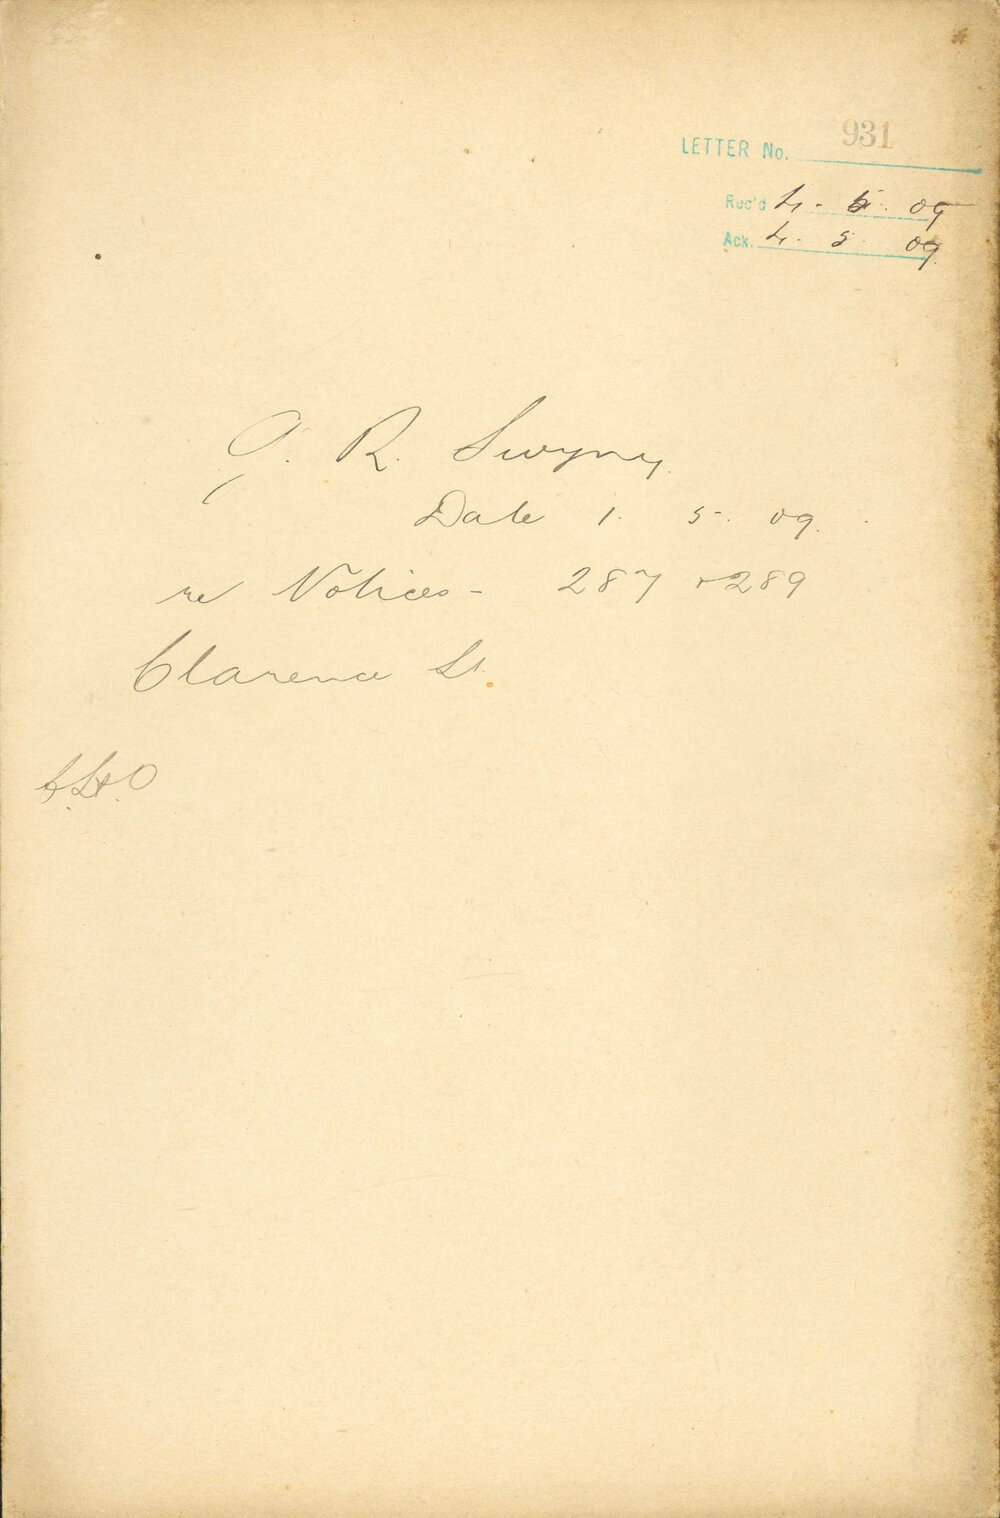 LETTER No. 931
Rec'd 4 - 5 . 09
Ack. 4 - 5 . 09.
G. R. Swyny.
Date 1. 5. 09.
re Notices - 287 + 289
Clarence St.